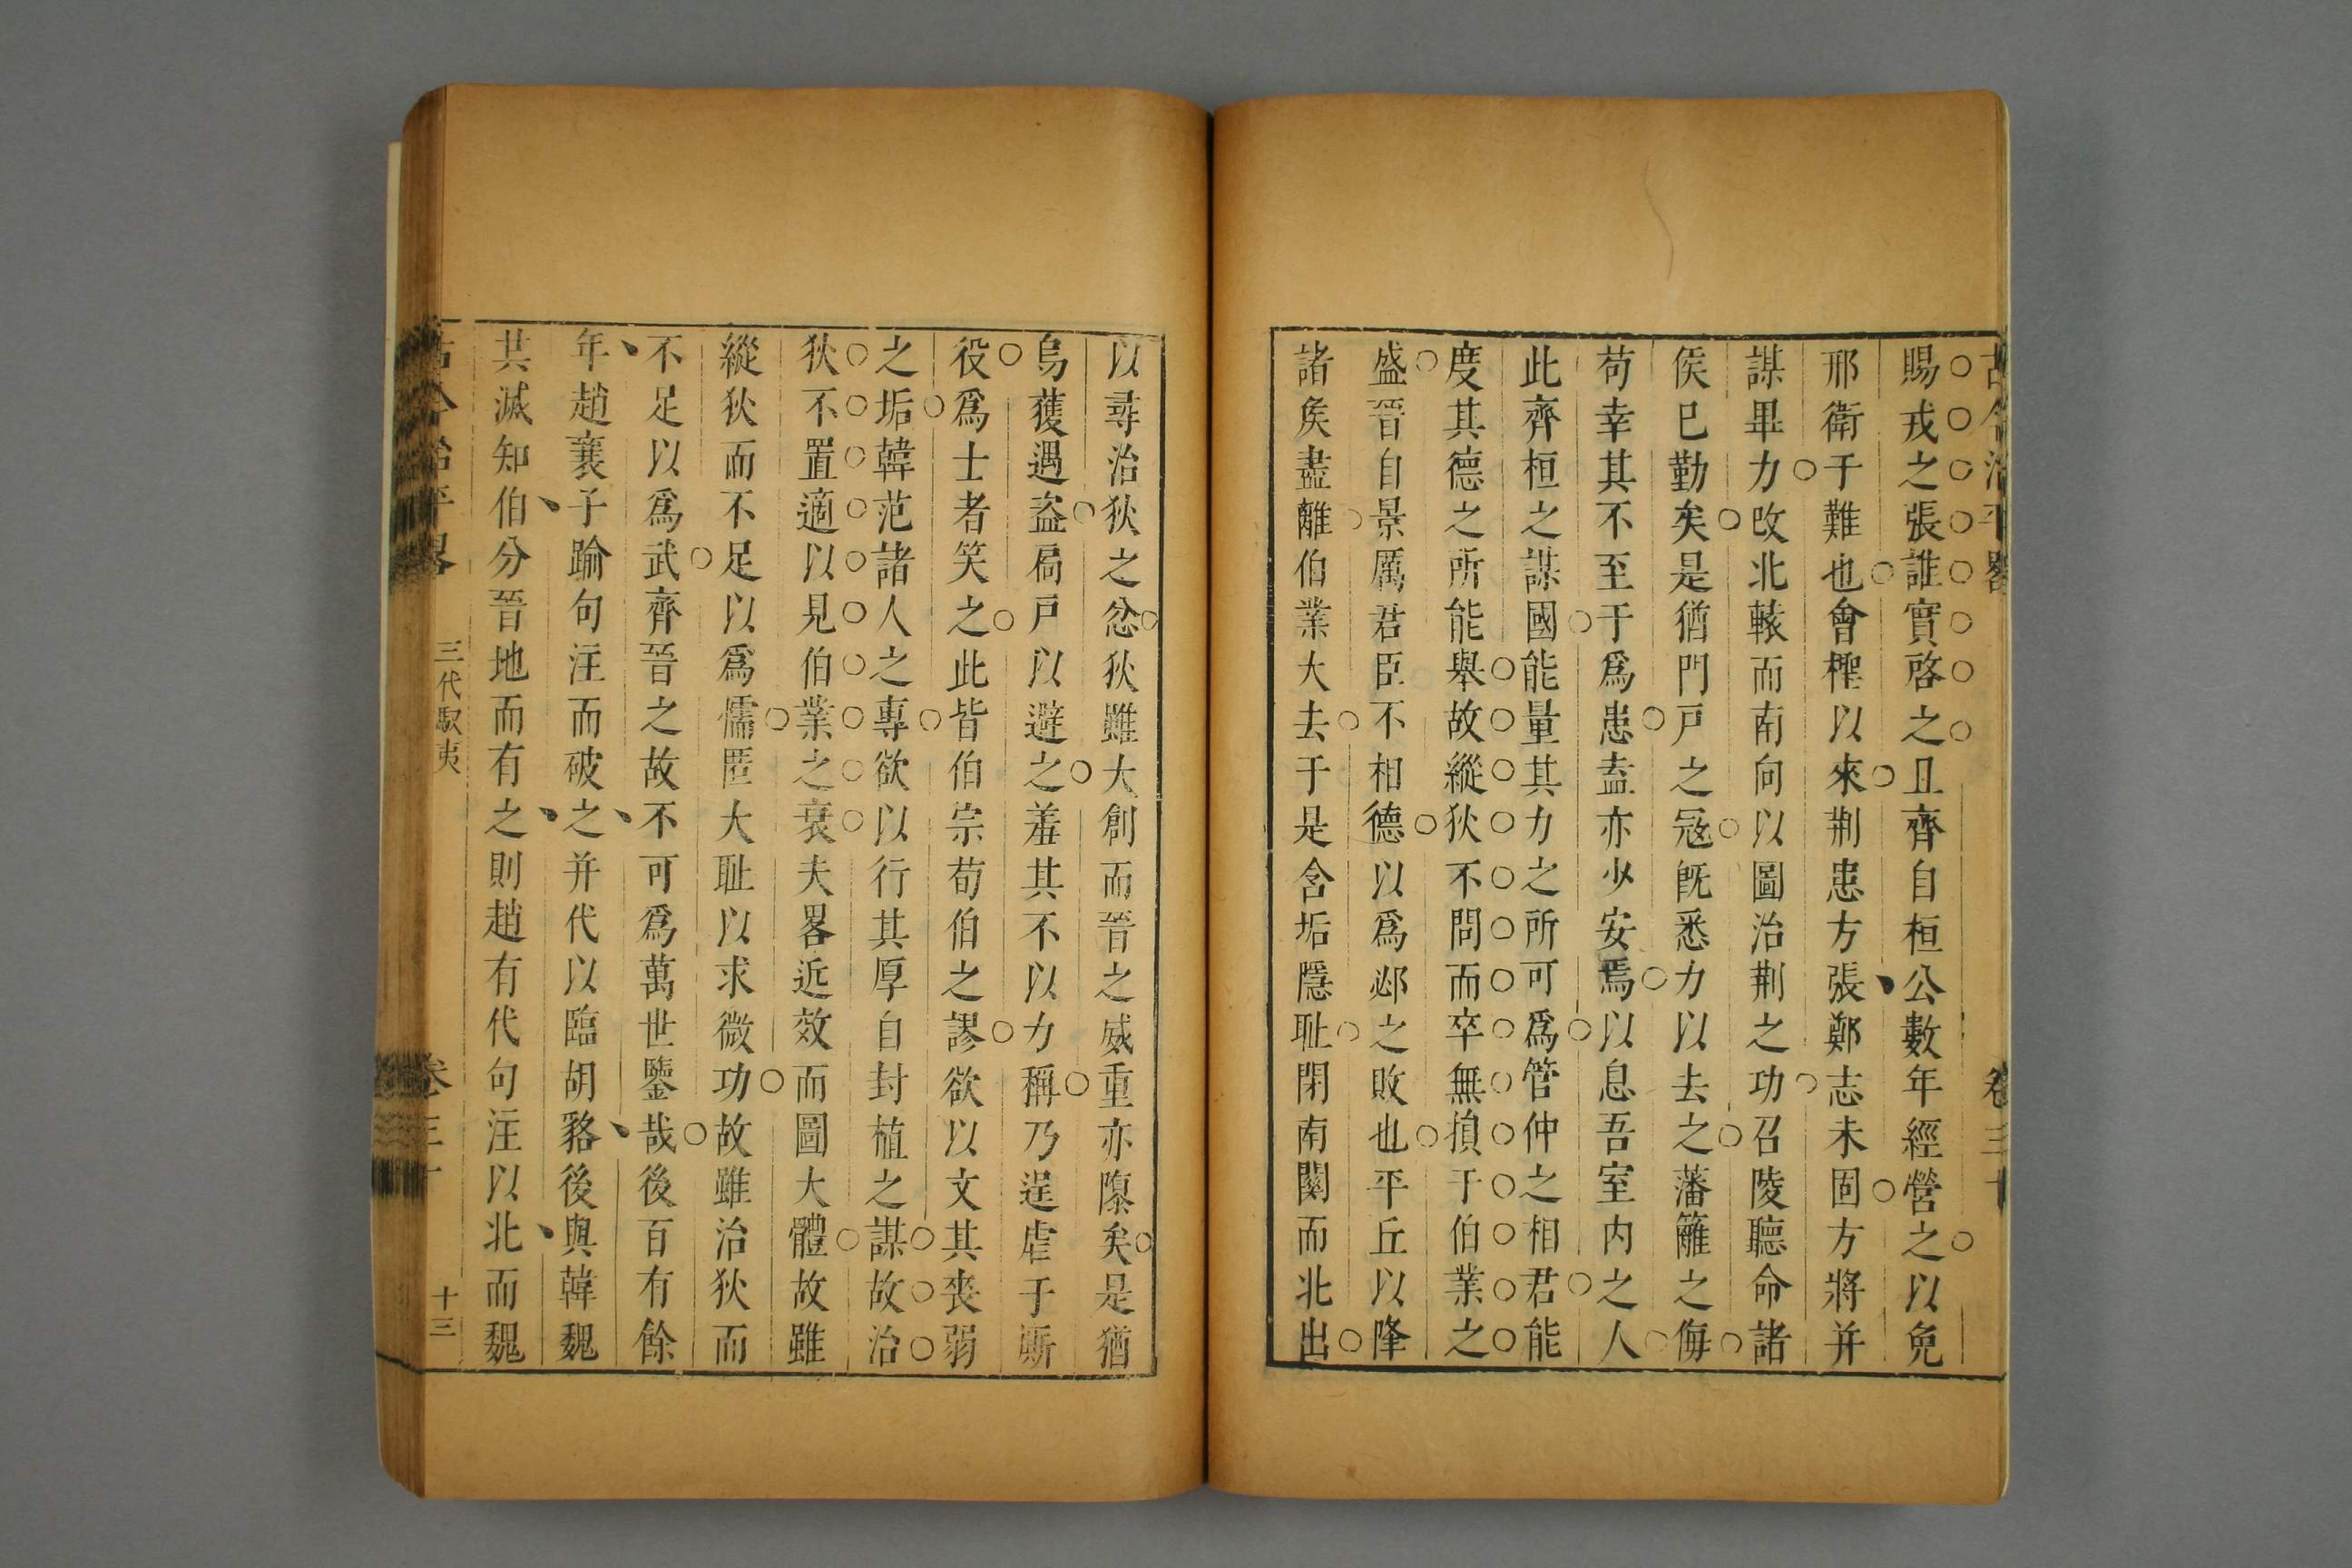 古今治平畧
卷三十
賜戎之張誰實啓之且齊自桓公數年經營之以免
邢衛于難也會檉以來荆患方張鄭志未固方將并
謀畢力改北轅而南向以圖治荆之功召陵聽命諸
侯巳勤矣是猶門戸之冦旣悉力以去之藩籬之侮
苟幸其不至于爲患盍亦少安焉以息吾室内之人
此齊桓之謀國能量其力之所可爲管仲之相君能
度其德之所能舉故縱狄不問而卒無損于伯業之
盛晉自景厲君臣不相德以爲邲之敗也平丘以降
諸矦盡離伯業大去于是含垢隱耻閉南關而北出
以尋治狄之忿狄雖大創而晉之威重亦隳矣是猶
烏獲遇盜扃戸以避之羞其不以力稱乃逞虐于厮
役爲士者笑之此皆伯宗荀伯之謬欲以文其喪弱
之垢韓范諸人之專欲以行其厚自封植之謀故治
狄不置適以見伯業之衰夫畧近效而圖大體故雖
縱狄而不足以爲懦匿大耻以求微功故雖治狄而
不足以爲武齊晉之故不可爲萬世鑒哉後百有餘
年趙襄子踰句注而破之并代以臨胡貉後與韓魏
共滅知伯分晉地而有之則趙有代句注以北而魏
古今治平畧
三代馭夷
卷三十
十三